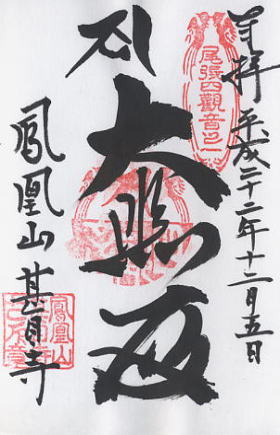 奉拝 平成二十二年十二月五日
尾張四觀音之一
大悲殿
鳳凰山 甚目寺